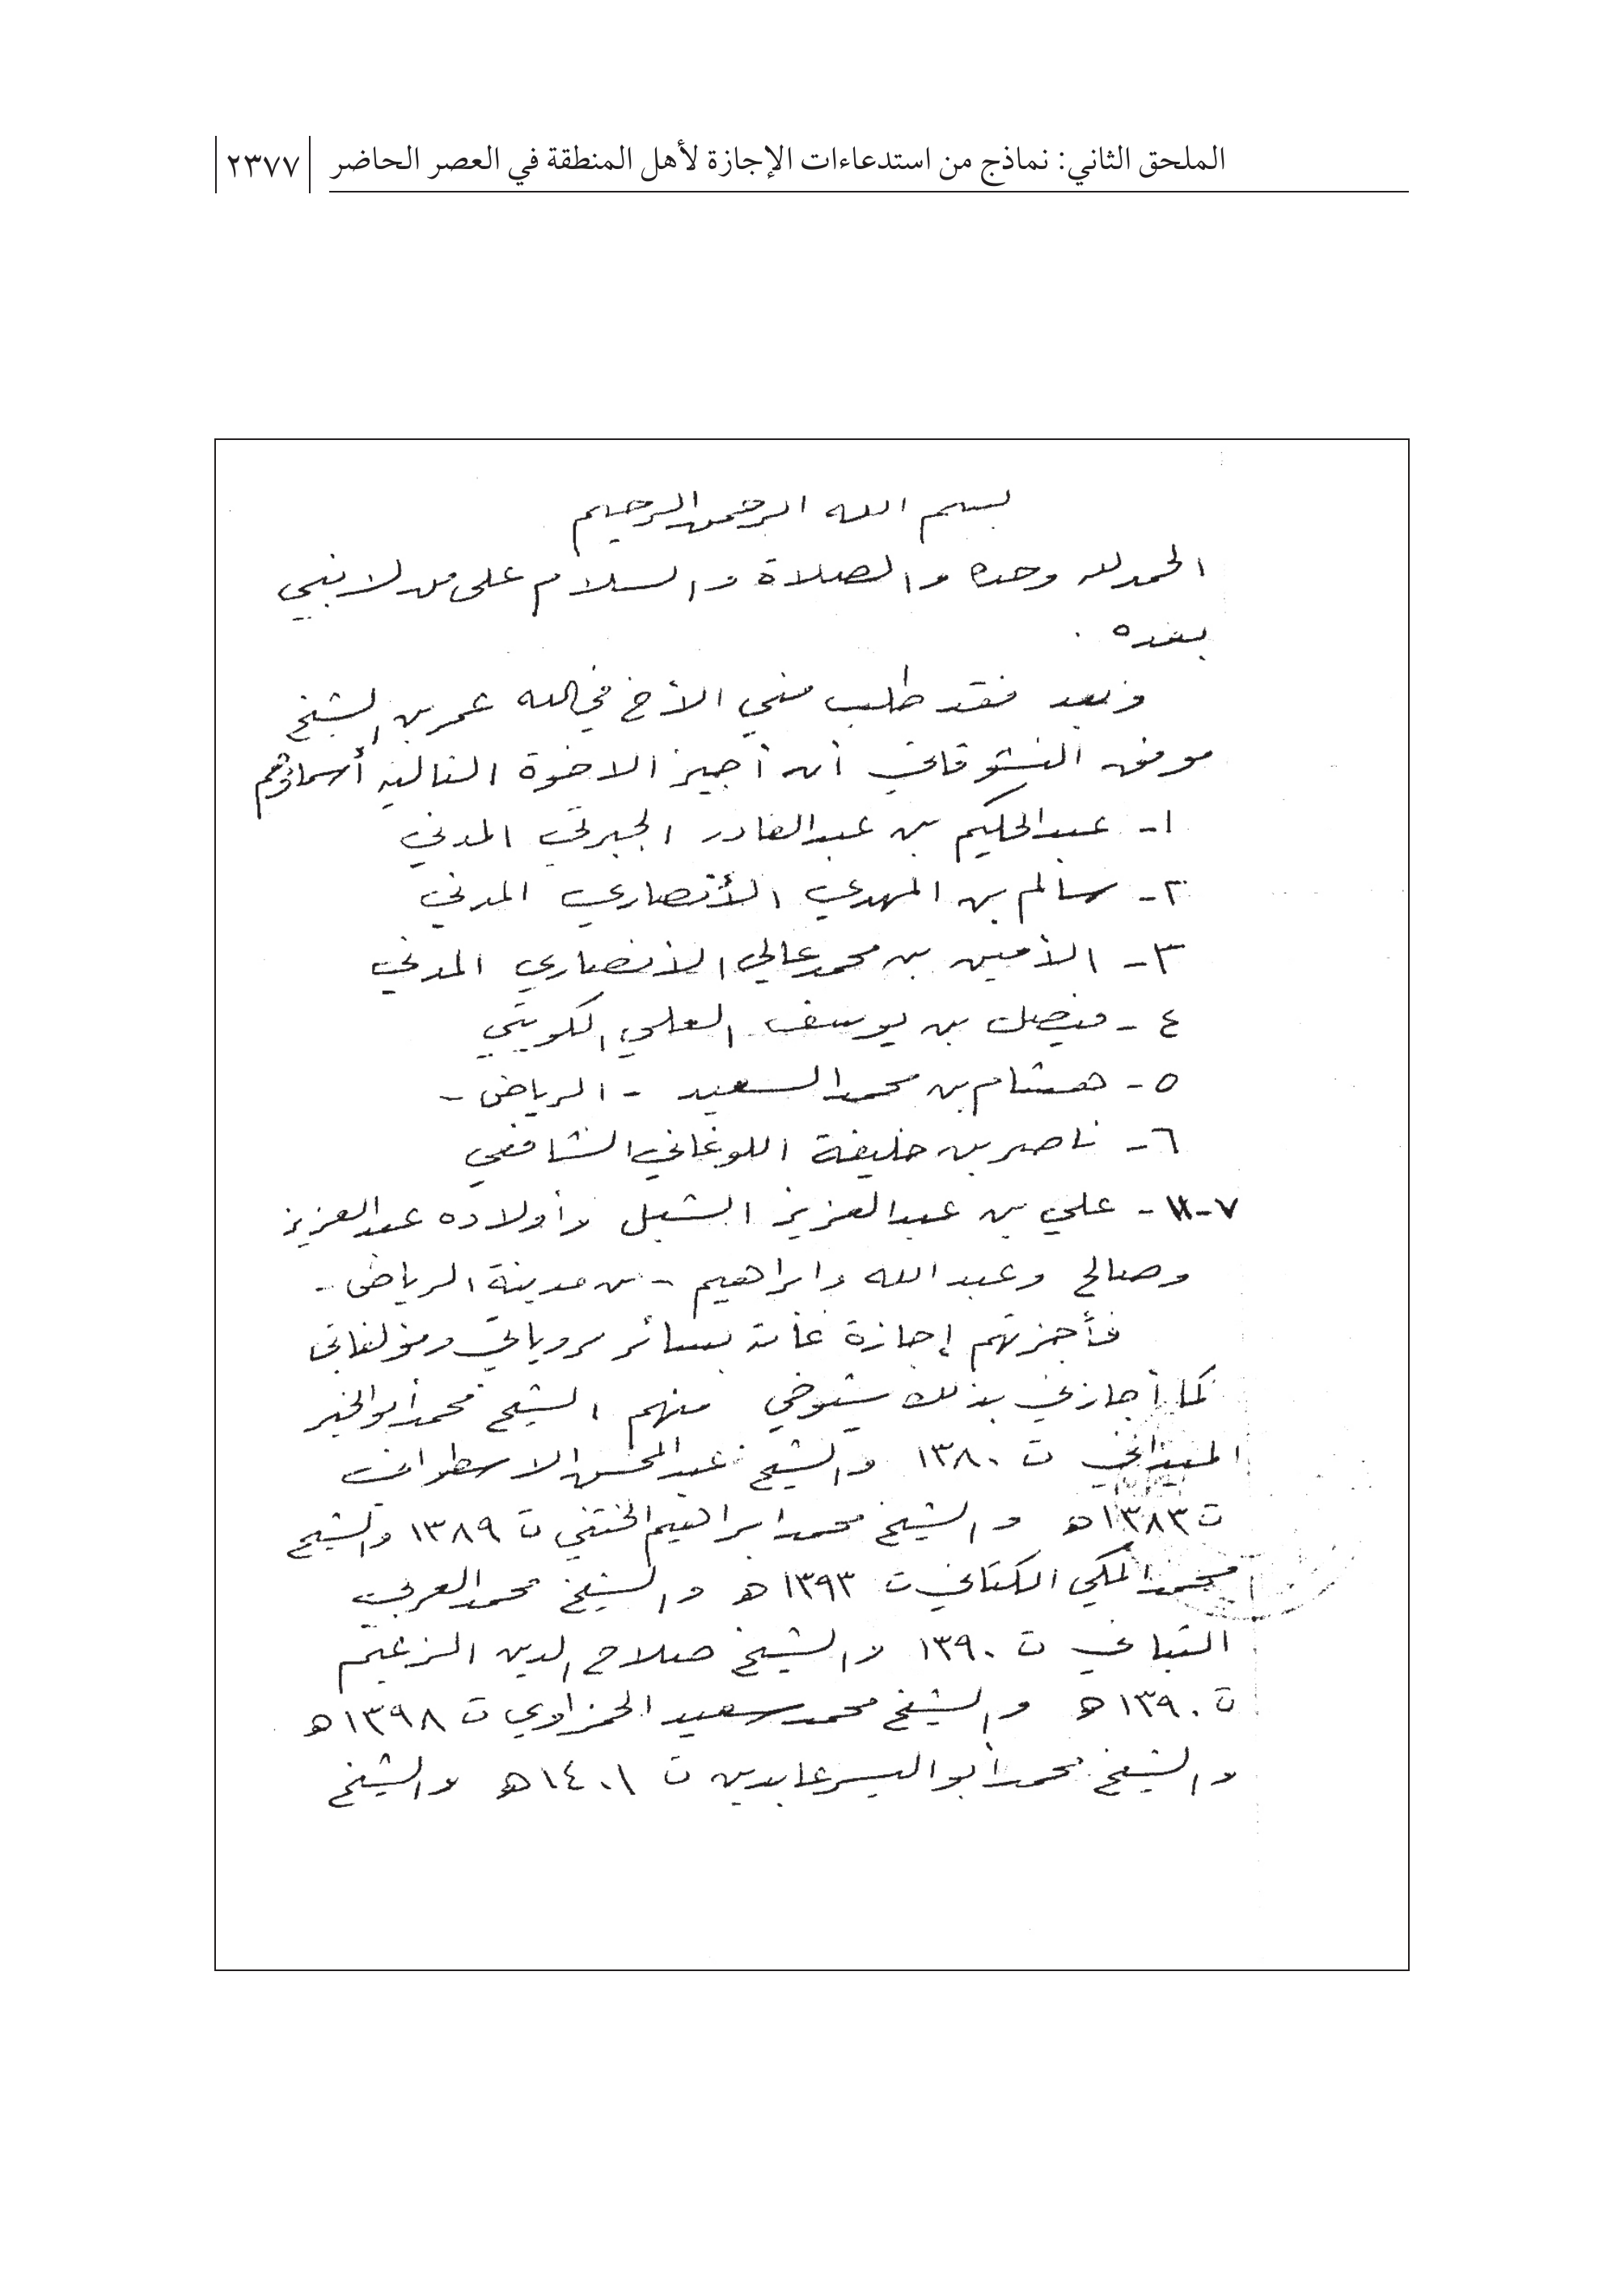 الملحق الثاني: نماذج من استدعاءات الإجازة لأهل المنطقة في العصر الحاضر ٢٣٧٧
بسم الله الرحمن الرحيم
الحمد لله وحده والصلاة والسلام على من لا نبي
بعده .
وبعد فقد طلب مني الأخ في الله عمر بن الشيخ
موفق النشوقاتي أن أجيز الاخوة التالية أسماؤهم
١- عبدالحكيم بن عبدالقادر الجبرتي المدني
٢- سالم بن المهدي الأنصاري المدني
٣- الأمين بن محمد عالي الأنصاري المدني
٤- فيصل بن يوسف العلي الكويتي
٥- هشام بن محمد السعيد - الرياض -
٦- ناصر بن خليفة اللوغاني الشافعي
٧-١١- علي بن عبدالعزيز الشبل وأولاده عبدالعزيز
وصالح وعبدالله وابراهيم - من مدينة الرياض -
فأجزتهم إجازة عامة بسائر مروياتي ومؤلفاتي
كما أجازني بذلك شيوخي منهم الشيخ محمد أبو الخير
الميداني ت ١٣٨٠ والشيخ عبدالمحسن الاسطواني
ت ١٣٨٣ه والشيخ محمد ابراهيم الختني ت ١٣٨٩ والشيخ
محمد المكي الكتاني ت ١٣٩٣ه والشيخ محمد العربي
التباني ت ١٣٩٠ والشيخ صلاح الدين الزعيم
ت ١٣٩٠ه والشيخ محمد سعيد الحمزاوي ت ١٣٩٨ه
والشيخ محمد أبو اليسر عابدين ت ١٤٠١ه والشيخ